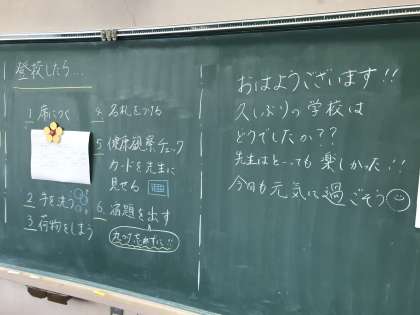 登校したら...
1. 席につく
2. 手を洗う
3. 荷物をしまう
4. 名札をつける
5. 健康観察チェック
カードを先生に
見せる
6. 宿題を出す
丸つけ忘れずに!!
おはようございます!!
久しぶりの学校は
どうでしたか??
先生はとっても楽しかった!!
今日も元気に過ごそう